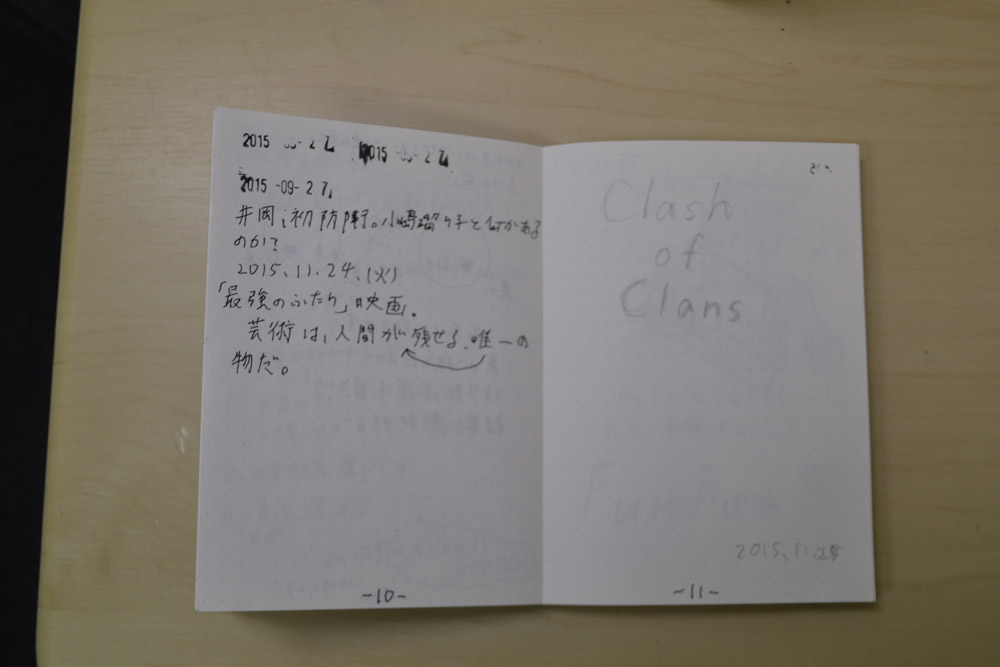 2015 -09- 2 7
2015
2015 -09- 2 7
井岡、初防衛。小嶋瑠りことと何かある
のか?
2015.11.24.(火)
「最強のふたり」映画.
芸術は、人間が残せる.唯一の
物だ。
-10-
Clash
of
Clans
2015.11.25
-11-